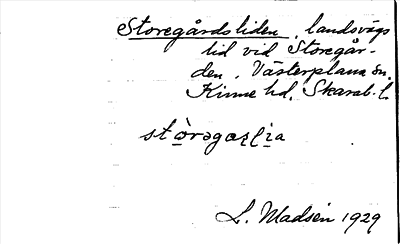 Storegårdsliden, landsvägs
lid vid Storegår-
den, Västerplana sn.
Kinne hd, Skarab. l.
stòrəgaɽlia
L. Madsén 1929